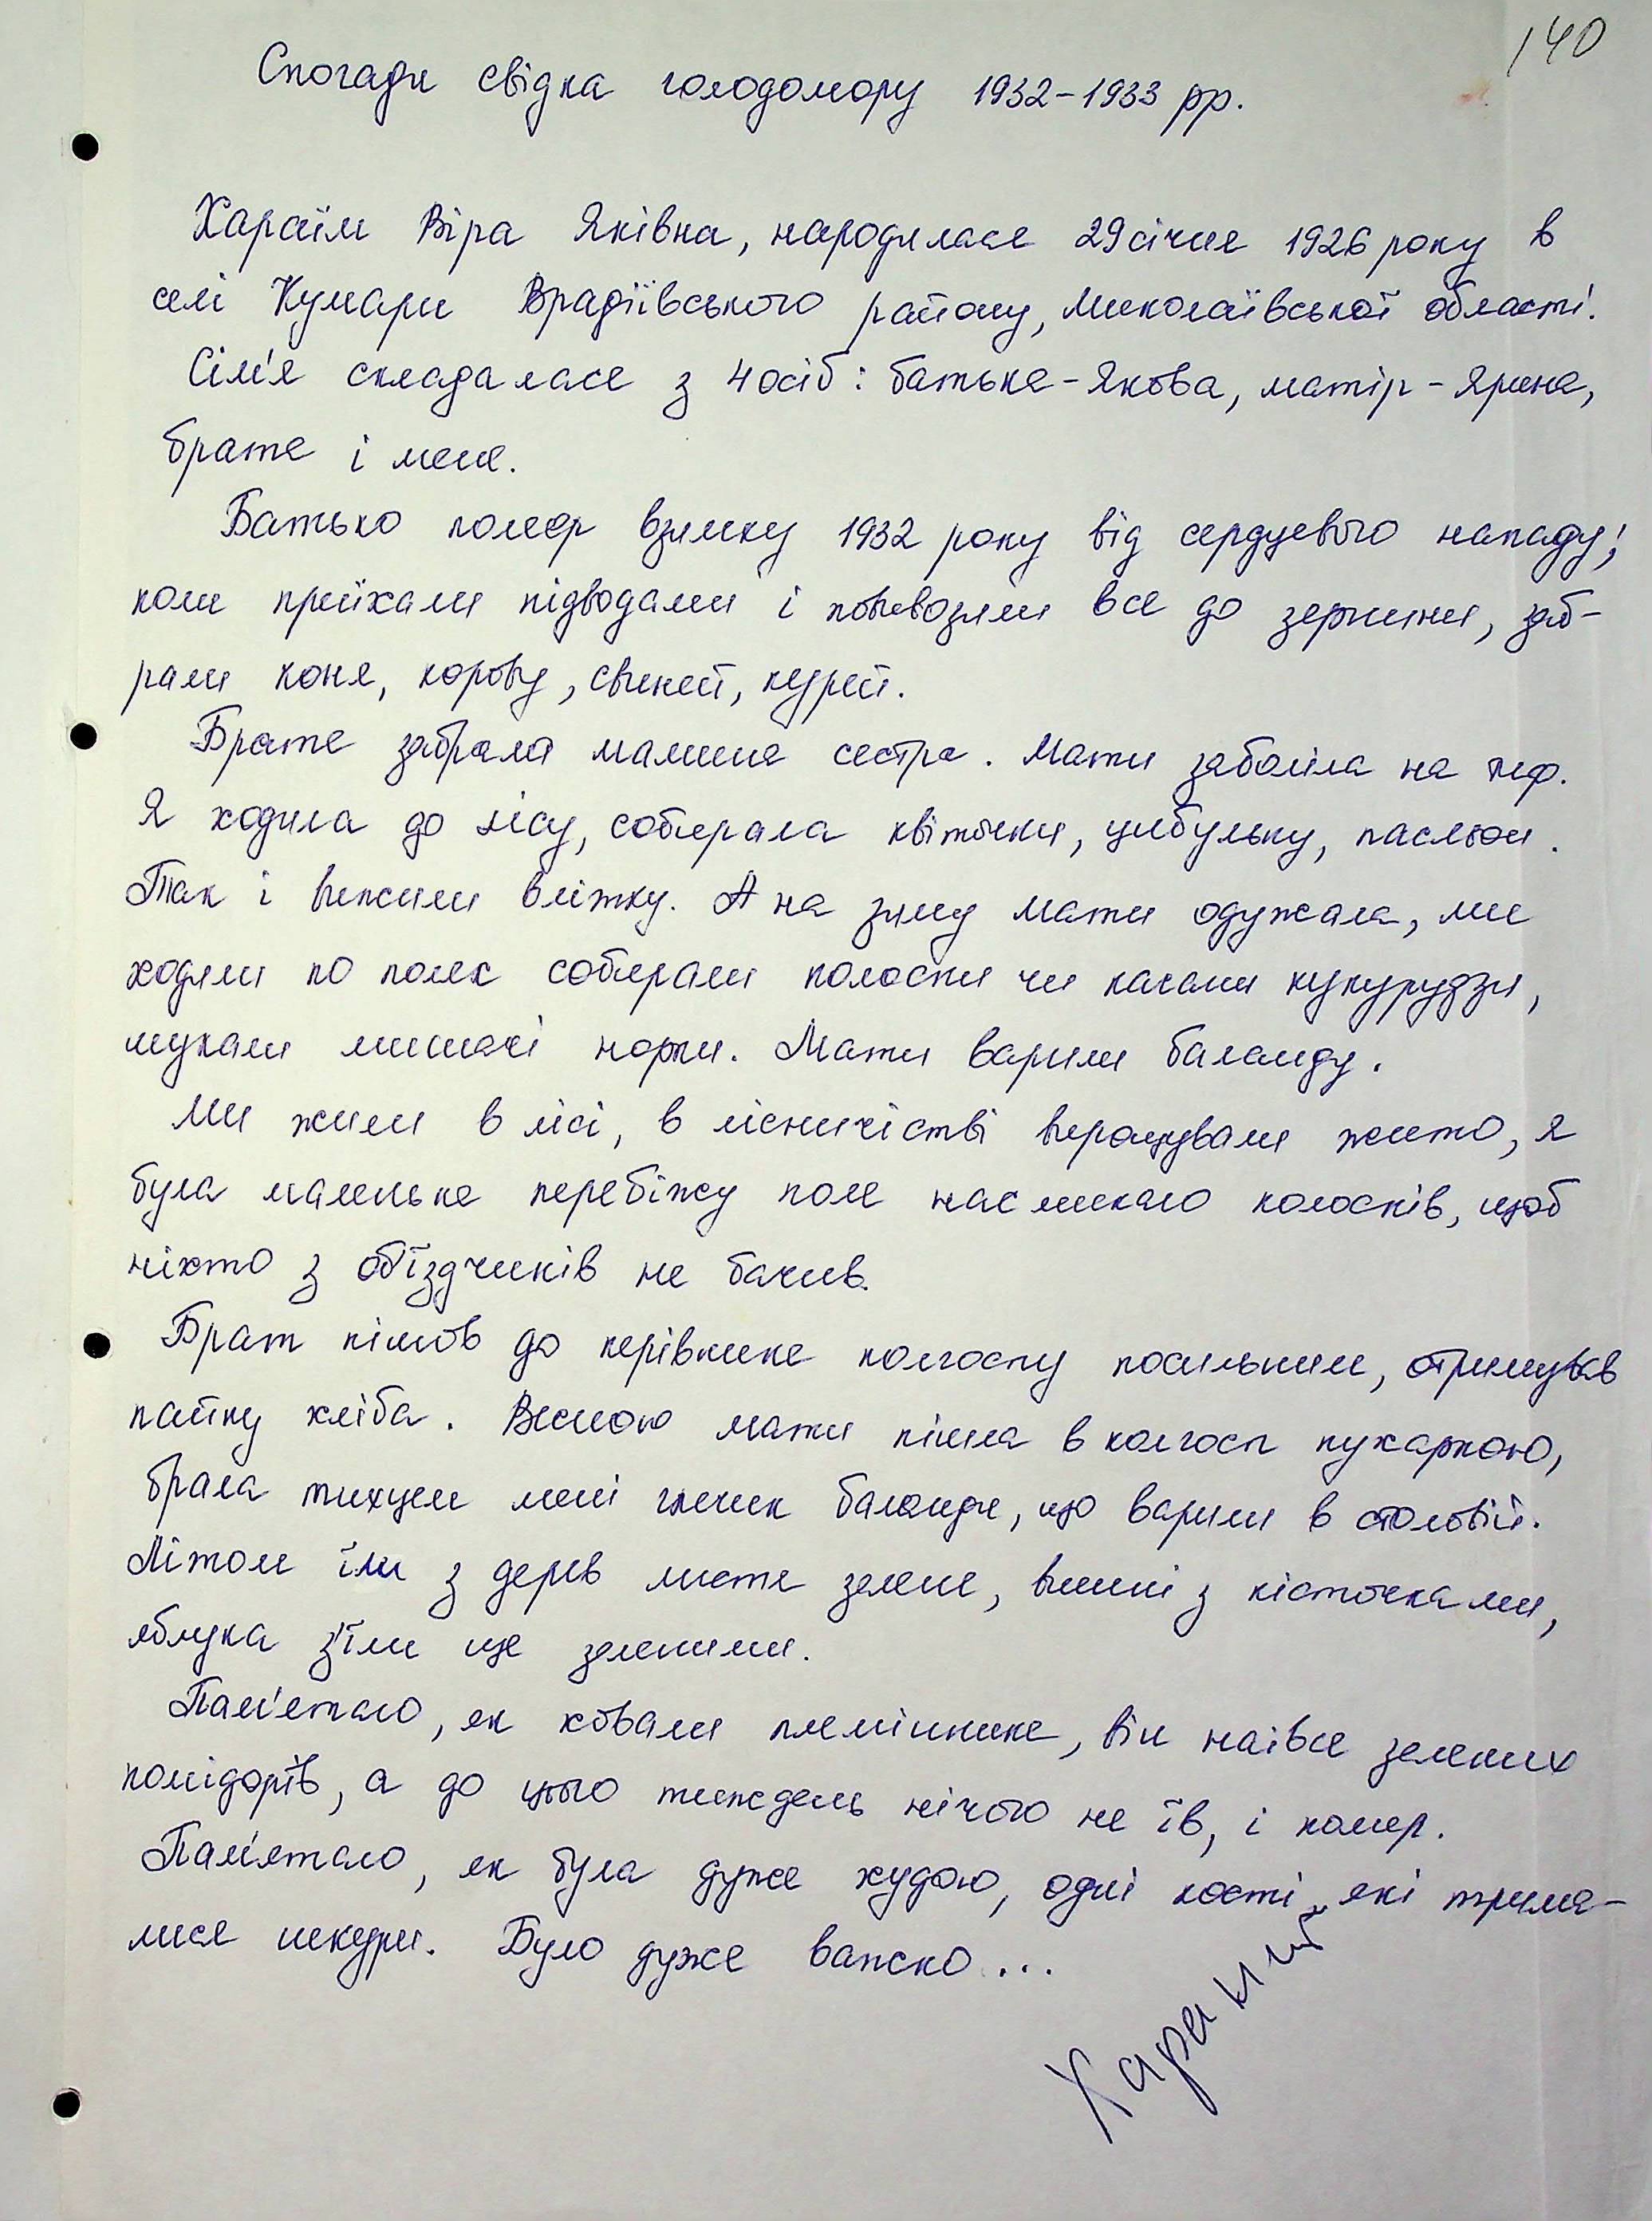 140
Спогади свідка голодомору 1932-1933 рр.
Хараїм Віра Яківна, народилася 29 січня 1926 року в
селі Кумари Врадіївського району, Миколаївської області.
Сім'я складалася з 4 осіб: батька - Якова, матір - Ярина,
брата і мене.
Батько помер взимку 1932 року від сердцевого нападу;
коли приїхали підводами і повивозили все до зернини, заб-
рали коня, корову, свиней, курей.
Брата забрала мамина сестра. Мати заболіла на тиф.
Я ходила до лісу, собирала квіточки, цибульку, пасльон.
Так і вижили влітку. А на зиму мати одужала, ми
ходили по полях собирали колоски чи качани кукурудзи,
шукали мишачі норки. Мати варили баланду.
Ми жили в лісі, в лісничістві вирощували жито, я
була маленька перебіжу поле насмикаю колосків, щоб
ніхто з об'їздчиків не бачив.
Брат пішов до керівника колгоспу посильним, отримував
пайку хліба. Весною мати пішла в колгосп кухаркою,
брала тихцем мені глечик баланди, що варили в столовій.
Літом їли з дерев листя зелене, вишні з кісточками,
яблука з'їли ще зеленими.
Пам'ятаю, як ховали племінника, він наївся зелених
помідорів, а до цього тиждень нічого не їв, і помер.
Пам'ятаю, як була дуже худою, одні кості, які трима-
лися шкури. Було дуже важко...